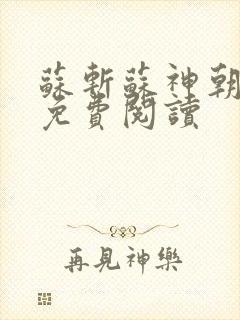 蘇斬蘇神朝
免費閱讀
再見神樂